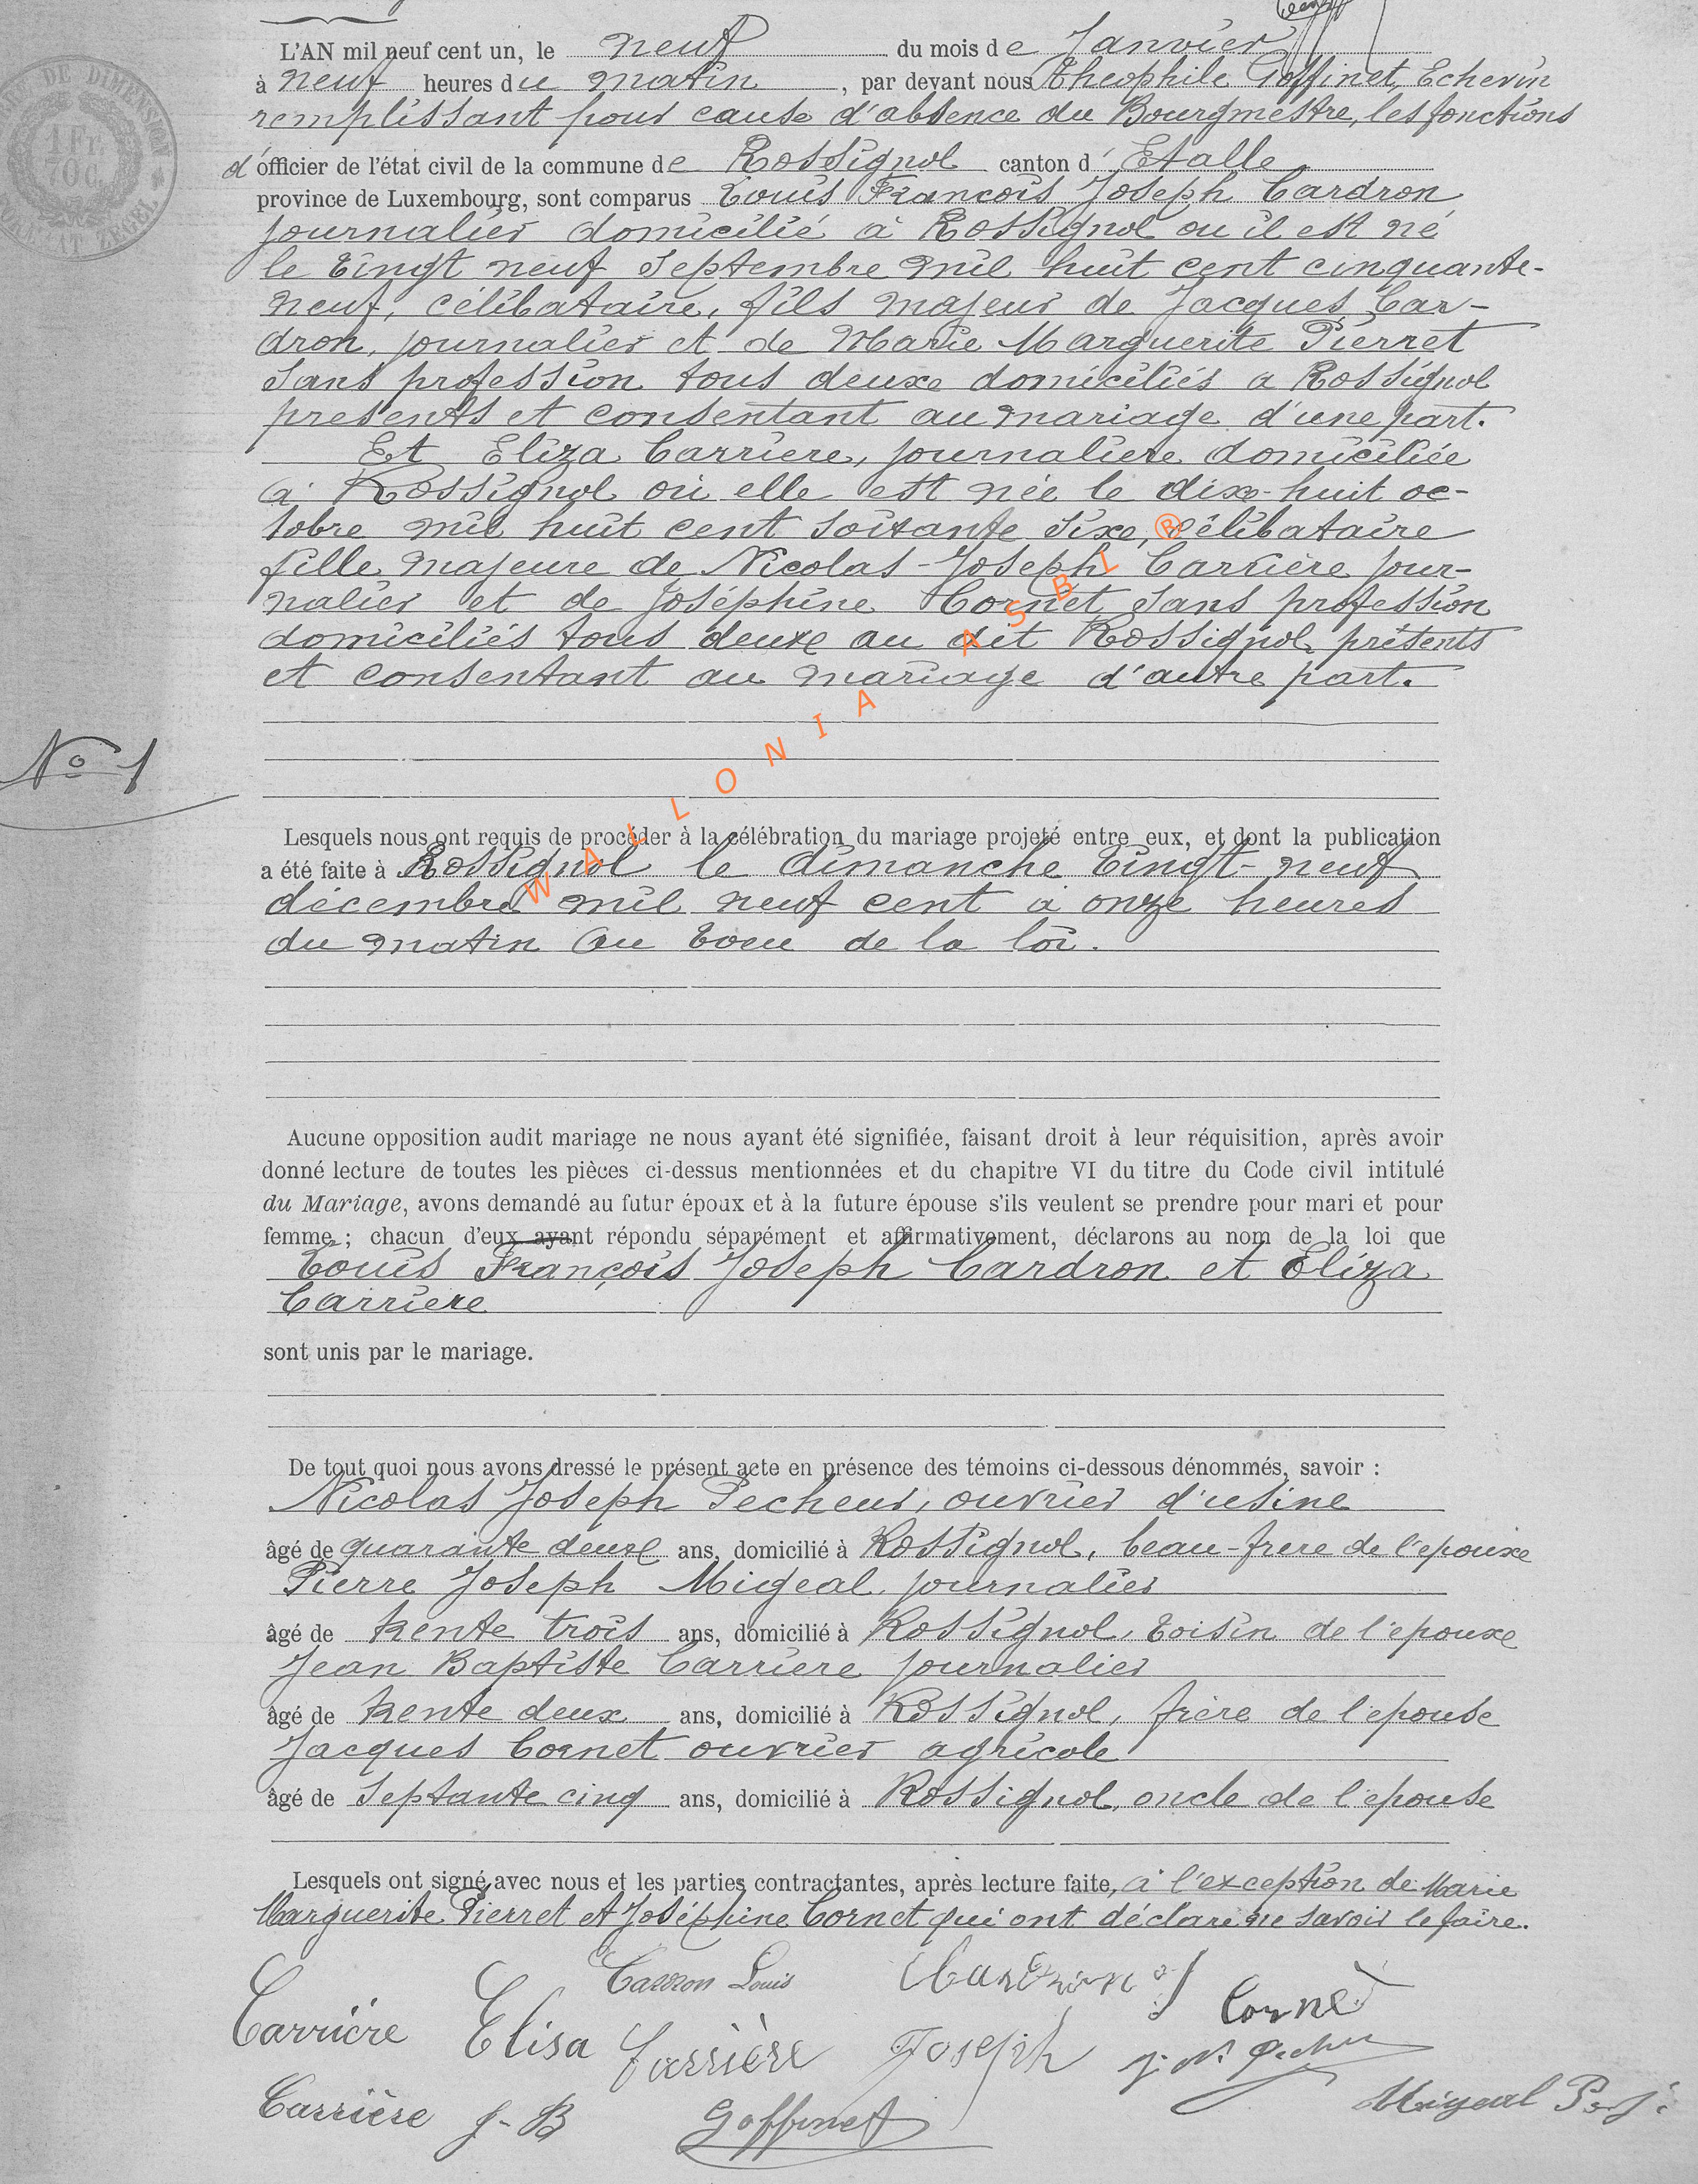 L'AN mil neuf cent un, le neuf du mois de Janvier
à neuf heures du matin, par devant nous Théophile Goffinet, Echevin
remplissant pour cause d'absence du Bourgmestre, les fonctions
d'officier de l'état civil de la commune de Rossignol canton d'Etalle
province de Luxembourg, sont comparus Louis François Joseph Cardron
journalier domicilié à Rossignol ou il est né
le vingt neuf septembre mil huit cent cinquante-
neuf, célibataire, fils majeur de Jacques Car-
dron, journalier et de Marie Marguerite Pierret
sans profession tous deux domiciliés a Rossignol
presents et consentant au mariage d'une part.
Et Eliza Carriere, journaliere domiciliée
à Rossignol où elle est née le dix-huit oc-
tobre mil huit cent soixante six, célibataire
fille majeure de Nicolas-Joseph Carrière jour-
nalier et de Joséphine Cornet sans profession
domiciliés tous deux au dit Rossignol présents
et consentant au mariage d'autre part.
No 1
WALLONIA ASBL ®
Lesquels nous ont requis de procéder à la célébration du mariage projeté entre eux, et dont la publication
a été faite à Rossignol le dimanche vingt-neuf
décembre mil neuf cent à onze heures
du matin au voeu de la loi.
Aucune opposition audit mariage ne nous ayant été signifiée, faisant droit à leur réquisition, après avoir
donné lecture de toutes les pièces ci-dessus mentionnées et du chapitre VI du titre du Code civil intitulé
du Mariage, avons demandé au futur époux et à la future épouse s'ils veulent se prendre pour mari et pour
femme ; chacun d'eux ayant répondu séparément et affirmativement, déclarons au nom de la loi que
Louis François Joseph Cardron et Eliza
Carriere
sont unis par le mariage.
De tout quoi nous avons dressé le présent acte en présence des témoins ci-dessous dénommés, savoir :
Nicolas Joseph Pecheur, ouvrier d'usine
âgé de quarante deux ans, domicilié à Rossignol, beau-frere de l'epoux
Pierre Joseph Migeal, journalier
âgé de trente trois ans, domicilié à Rossignol, voisin de l'epoux
Jean Baptiste Carriere journalier
âgé de trente deux ans, domicilié à Rossignol, frère de l'epouse
Jacques Cornet ouvrier agricole
âgé de septante cinq ans, domicilié à Rossignol, oncle de l'epouse
Lesquels ont signé avec nous et les parties contractantes, après lecture faite, à l'exception de Marie
Marguerite Pierret et Joséphine Cornet qui ont déclaré ne savoir le faire.
Cardron Louis
Carrière Elisa Carrière Joseph Cornet
Carrière J-B Goffinet Migeal P. J.